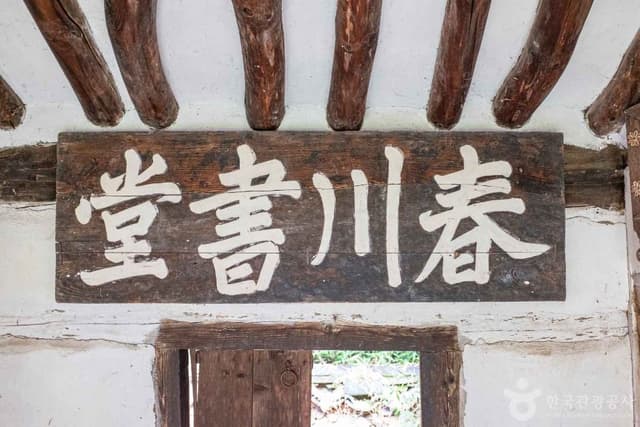 春川書堂
한국관광공사